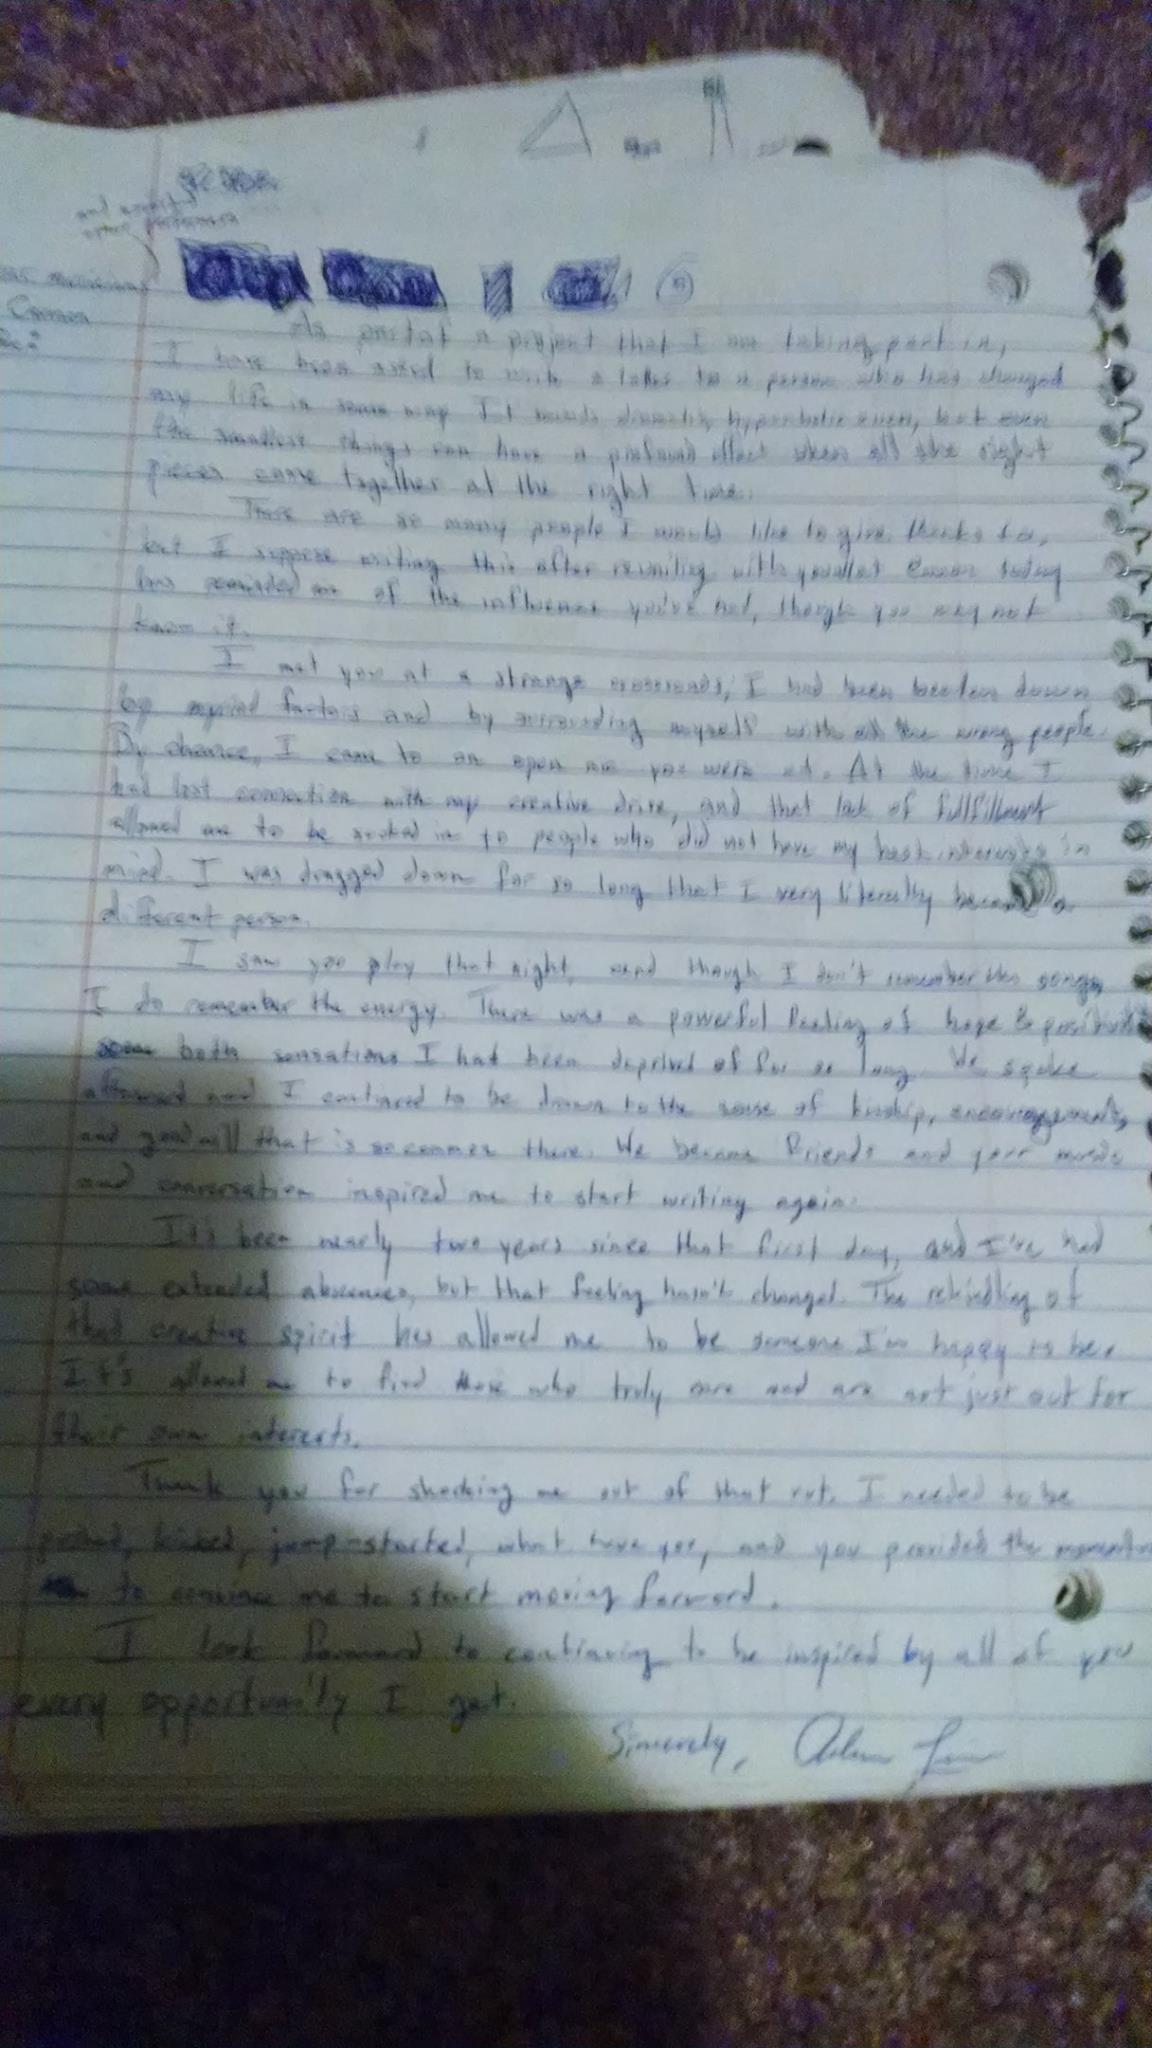 and
other
musicians
As part of a project that I am taking part in,
I have been asked to write a letter to a person who has changed
my life in some way. It sounds dramatic, hyperbolic even, but even
the smallest things can have a profound effect when all the right
pieces come together at the right time.
There are so many people I would like to give thanks to,
but I suppose writing this after reuniting with you at today
has reminded me of the influence you've had, though you may not
know it.
I met you at a strange crossroads; I had been beaten down
by myriad factors and by surrounding myself with all the wrong people.
By chance, I came to an open mic you were at. At the time I
had lost connection with my creative drive, and that lack of fulfillment
allowed me to be sucked in to people who did not have my best interests in
mind. I was dragged down for so long that I very literally became a
different person.
I saw you play that night, and though I don't remember the songs,
I do remember the energy. There was a powerful feeling of hope & positivity
both sensations I had been deprived of for so long. We spoke
afterward and I continued to be drawn to the sense of kinship, encouragement,
and goodwill that is so common there. We became friends and your music
and conversation inspired me to start writing again.
It's been nearly two years since that first day, and I've had
some extended absences, but that feeling hasn't changed. The rekindling of
that creative spirit has allowed me to be someone I'm happy to be.
It's allowed me to find those who truly care and are not just out for
their own interests.
Thank you for shocking me out of that rut. I needed to be
pushed, kicked, jump-started, what have you, and you provided the momentum
to convince me to start moving forward.
I look forward to continuing to be inspired by all of you
every opportunity I get.
Sincerely,